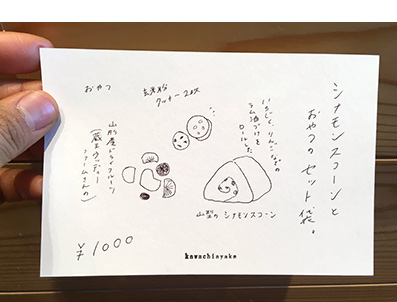 シナモンスコーンと
おやつのセット袋。
いちじく、りんごなどの
ラム酒づけを
ロールした
山型のシナモンスコーン
玄米粉
クッキー2枚
おやつ
山形産ドライフルーツ
(蔵王ウッディー
ファームさんの)
¥1000
kawachiyake